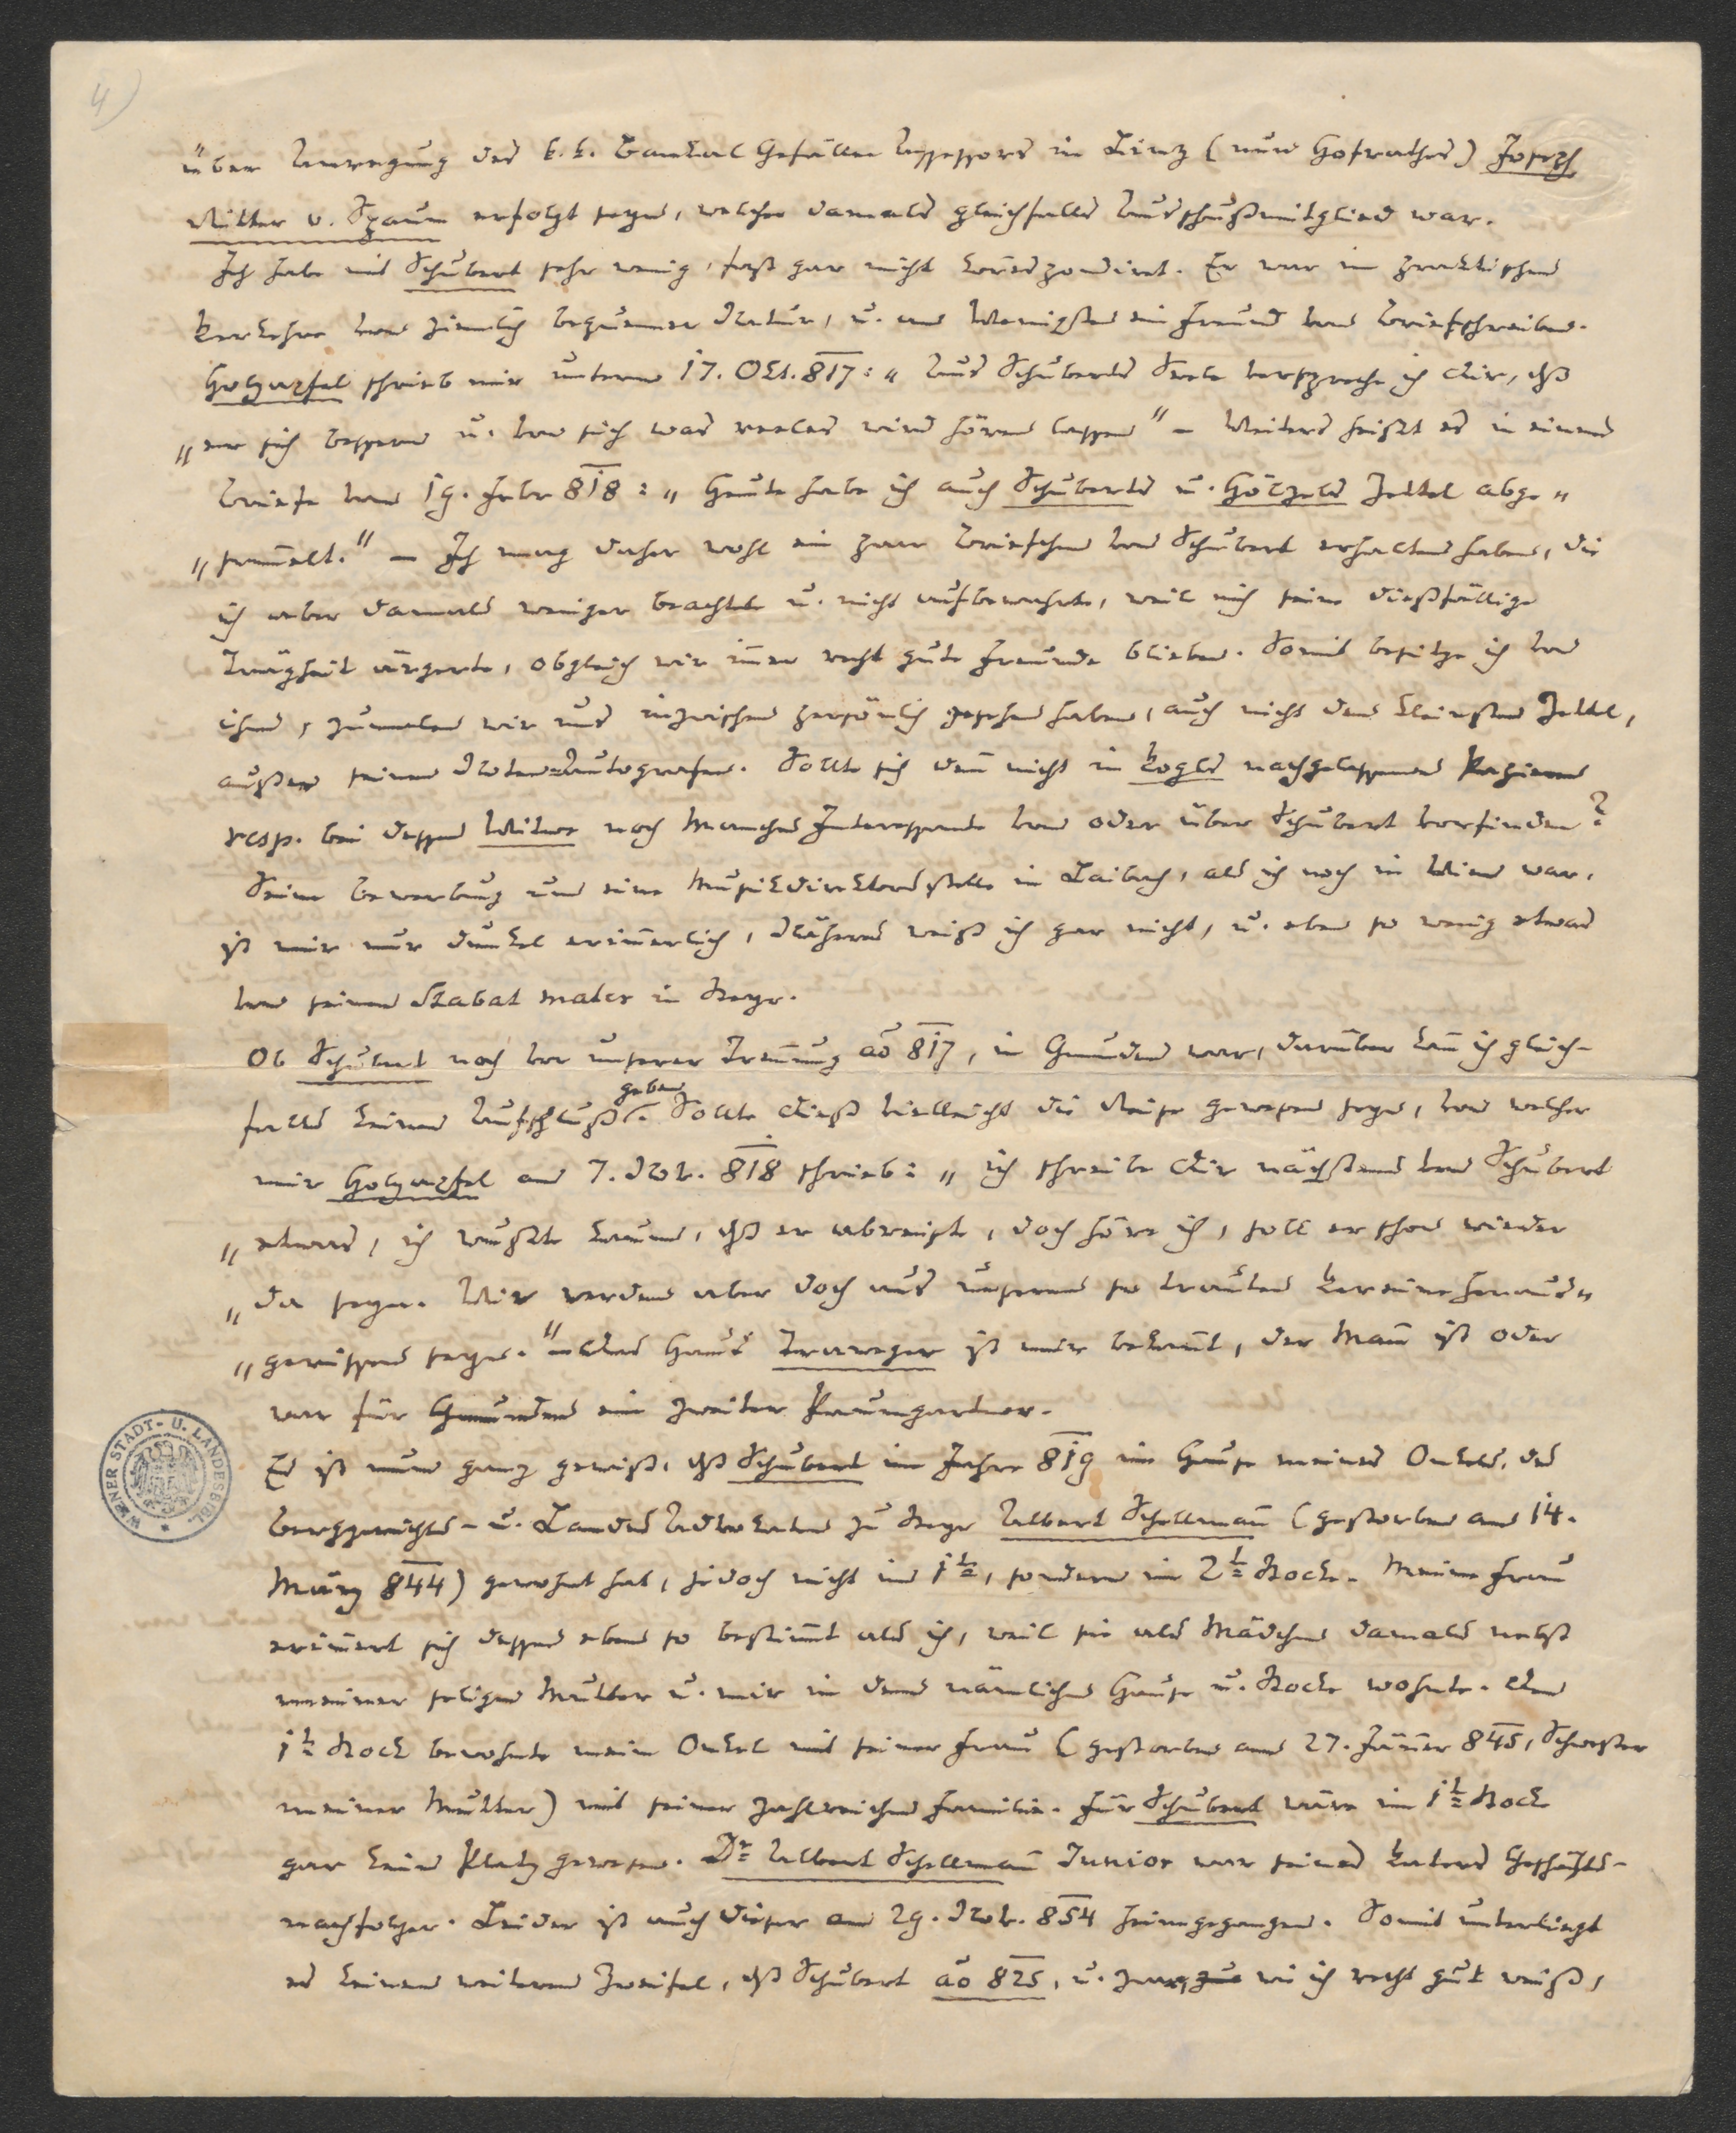 4)
über Anregung des k. k. Cameral Gefällen Assessors in Linz (nun Hofrathes) Joseph
Ritter v. Spaun erfolgt seyn, welcher damals gleichfalls Ausschußmitglied war.
Ich habe mit Schubert sehr wenig, fast gar nicht korrespondirt. Er war im praktischen
Verkehre von ziemlich bequemer Natur, u. am Wenigsten ein Freund vom Briefschreiben.
Holzapfel schrieb mir unterm 17. Okt. 817: „Aus Schuberts Seele verspreche ich Dir, dß
„er sich bessern u. von sich was reeles wird hören lassen" – Weiters heißt es in einem
Briefe vom 19. Febr 818: „Heute habe ich auch Schuberts u. Hölzels Zettel abge„
„sam̄elt." – Ich mag daher wohl ein paar Briefchen von Schubert erhalten haben, die
ich aber damals weniger beachtete u. nicht aufbewahrte, weil mich seine dießfällige
Trägheit ärgerte, obgleich wir im̄er recht gute Freunde blieben. Somit besitze ich von
ihm, zumalen wir uns inzwischen persönlich gesehen haben, auch nicht den kleinsten Zettel,
außer seinen Noten=Autografen. Sollte sich den̄ nicht in Vogls nachgelassenen Papieren
resp. bei dessen Witwe noch manches Interessante von oder über Schubert vorfinden?
Seine Bewerbung um eine Musikdirektorsstelle in Laibach, als ich noch in Wien war,
ist mir nur dunkel erin̄erlich, Näheres weiß ich gar nicht, u. eben so wenig etwas
von seinem Stabat mater in Steyr.
Ob Schubert noch vor unserer Tren̄ung aō 817, in Gmunden war, darüber kan̄ ich gleich-
falls keinen Aufschluß geben. Sollte dieß vielleicht die Reise gewesen seyn, von welcher
mir Holzapfel am 7. Nov. 818 schrieb: „ich schreibe Dir nächstens von Schubert
„etwas, ich wußte kaum, dß er abreiste, doch höre ich, soll er schon wieder
„da seyn. Wir werden aber doch aus unserem so trauten Vereine heraus„
„gerissen seyn." – Das Haus Traweger ist mir bekan̄t, der Man̄ ist oder
war für Gmunden ein zweiter Paumgartner.
Es ist nun ganz gewiß, dß Schubert im Jahre 819 im Hause meines Onkels, des
Berggerichts- u. Landes Advokaten zu Steyr Albert Schellman̄ (gestorben am 14.
März 844) gewohnt hat, jedoch nicht im 1t=, sondern im 2t= Stocke. Meine Frau
erin̄ert sich dessen eben so bestim̄t als ich, weil sie als Mädchen damals nebst
meiner seligen Mutter u. mir in dem nämlichen Hause u. Stocke wohnte. Den
1t= Stock bewohnte mein Onkel mit seiner Frau (gestorben am 27. Jän̄er 845, Schwester
meiner Mutter) mit seiner zahlreichen Familie. Für Schubert wäre im 1t= Stock
gar kein Platz gewesen. Dr= Albert Schellman̄ Junior war seines Vaters Geschäfts-
nachfolger. Leider ist auch dieser am 29. Nov. 854 heimgegangen. Somit unterliegt
es keinem weiteren Zweifel, dß Schubert aō 825, u. zwar, wie ich recht gut weiß,
WIENER STADT- U. LANDESBIBL.